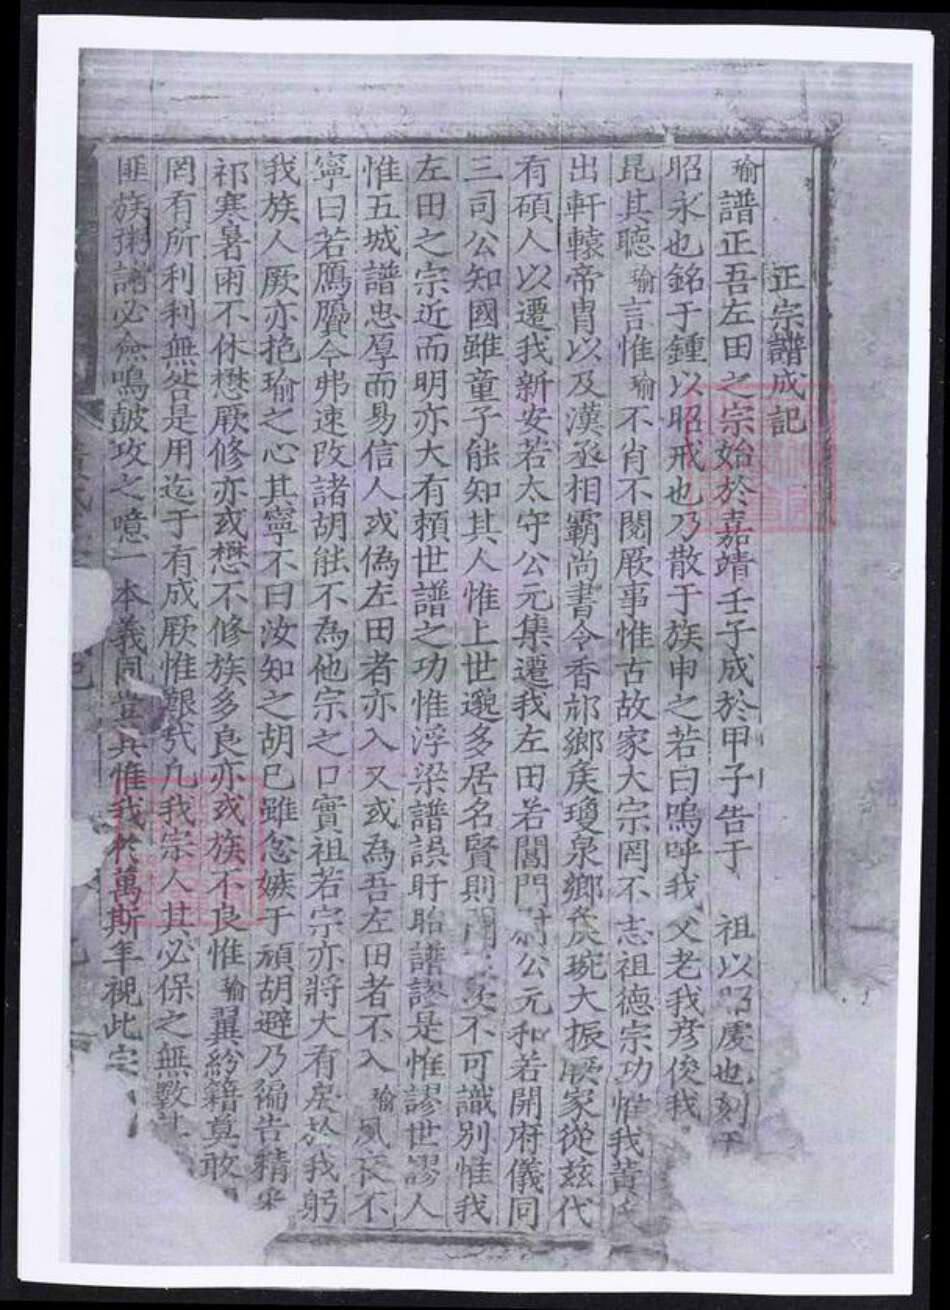 正宗譜成記
瑜譜正吾左田之宗始於嘉靖壬子成於甲子告于 祖以昭慶也刻
昭永也銘于鍾以昭戒也乃散于族申之若曰嗚呼我父老我彥俊我
昆其聽瑜言惟瑜不肖不閱厥事惟古故家大宗罔不志祖德宗功惟我黃
出軒轅帝胄以及漢丞相霸尚書令香祁鄉矦瓊泉鄉矦琬大振厥家從茲代
有碩人以遷我新安若太守公元集遷我左田若閶門尉公元和若開府儀同
三司公知國雖童子能知其人惟上世邈多居名賢則不可識別惟我
左田之宗近而明亦大有頼世譜之功惟浮梁譜誤盱眙譜謬是惟謬世謬人
惟五城譜忠厚而易信人或偽左田者亦入又或為吾左田者不入瑜夙夜不
寧曰若鴈贗今弗速改諸胡能不為他宗之口實祖若宗亦將大有戾於我躬
我族人厥亦抱瑜之心其寧不曰汝知之胡已雖忽嫉于頑胡避乃徧告精
祁寒暑雨不休懋厥修亦或懋不修族多良亦或族不良惟瑜翼紛籍莫敢
罔有所利利無咎是用迄于有成厥惟艱哉凡我宗人其必保之無斁
匪族粥譜必僉鳴皷攻之噫一本義同惟我代萬斯年視此